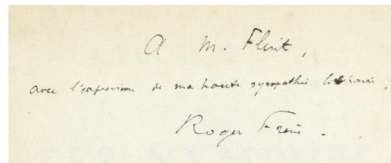 A M. Flint,
avec l'expression de ma haute sympathie littéraire,
Roger Frène.